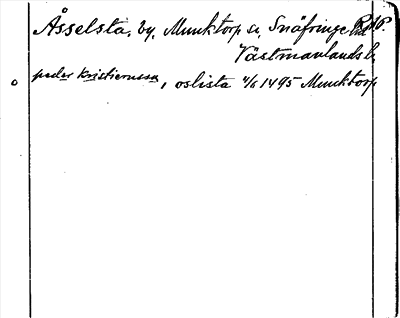 Åsselsta, by, Munktorp sn, Snäfringe hd
Västmanlands l.
peder kristiernsson, oslista 4/6 1495 Munktorp